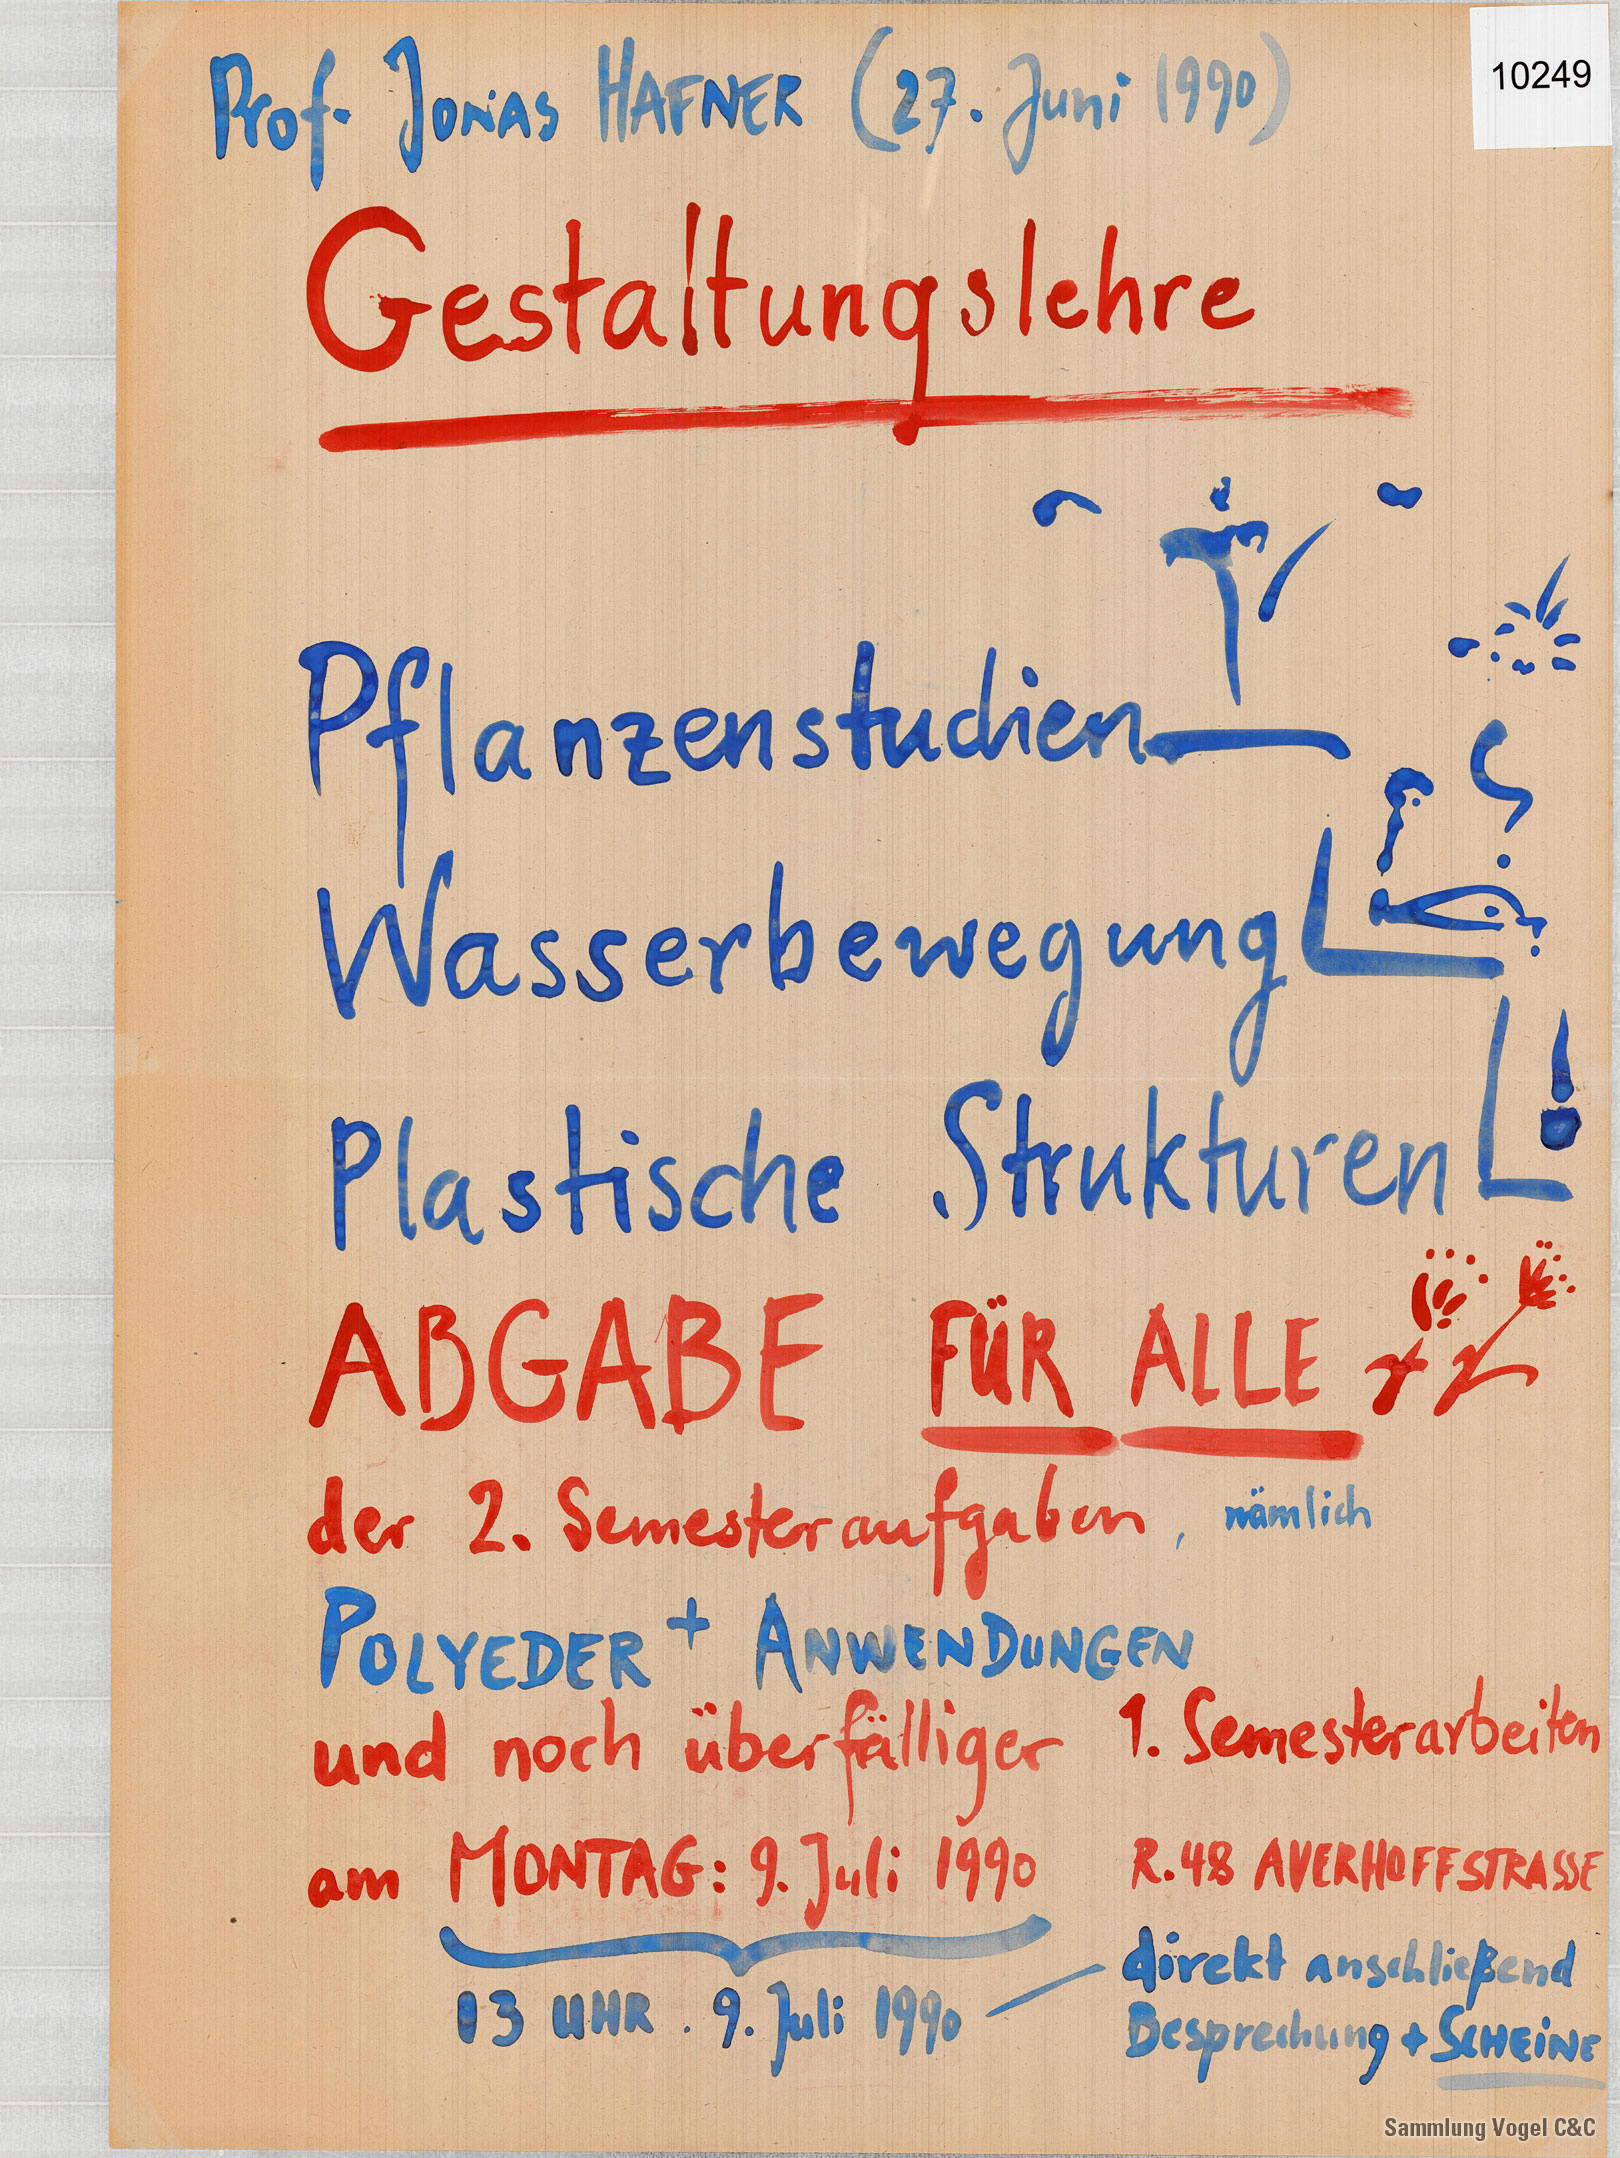 10249
Prof. Jonas HAFNER (27. Juni 1990)
Gestaltungslehre
Pflanzenstudien
Wasserbewegung
Plastische Strukturen
ABGABE FÜR ALLE
der 2. Semesteraufgaben, nämlich
POLYEDER + ANWENDUNGEN
und noch überfälliger 1. Semesterarbeiten
am MONTAG: 9. Juli 1990 R.48 AVERHOFFSTRASSE
13 UHR. 9. Juli 1990 — direkt anschließend
Besprechung + SCHEINE
Sammlung Vogel C&C